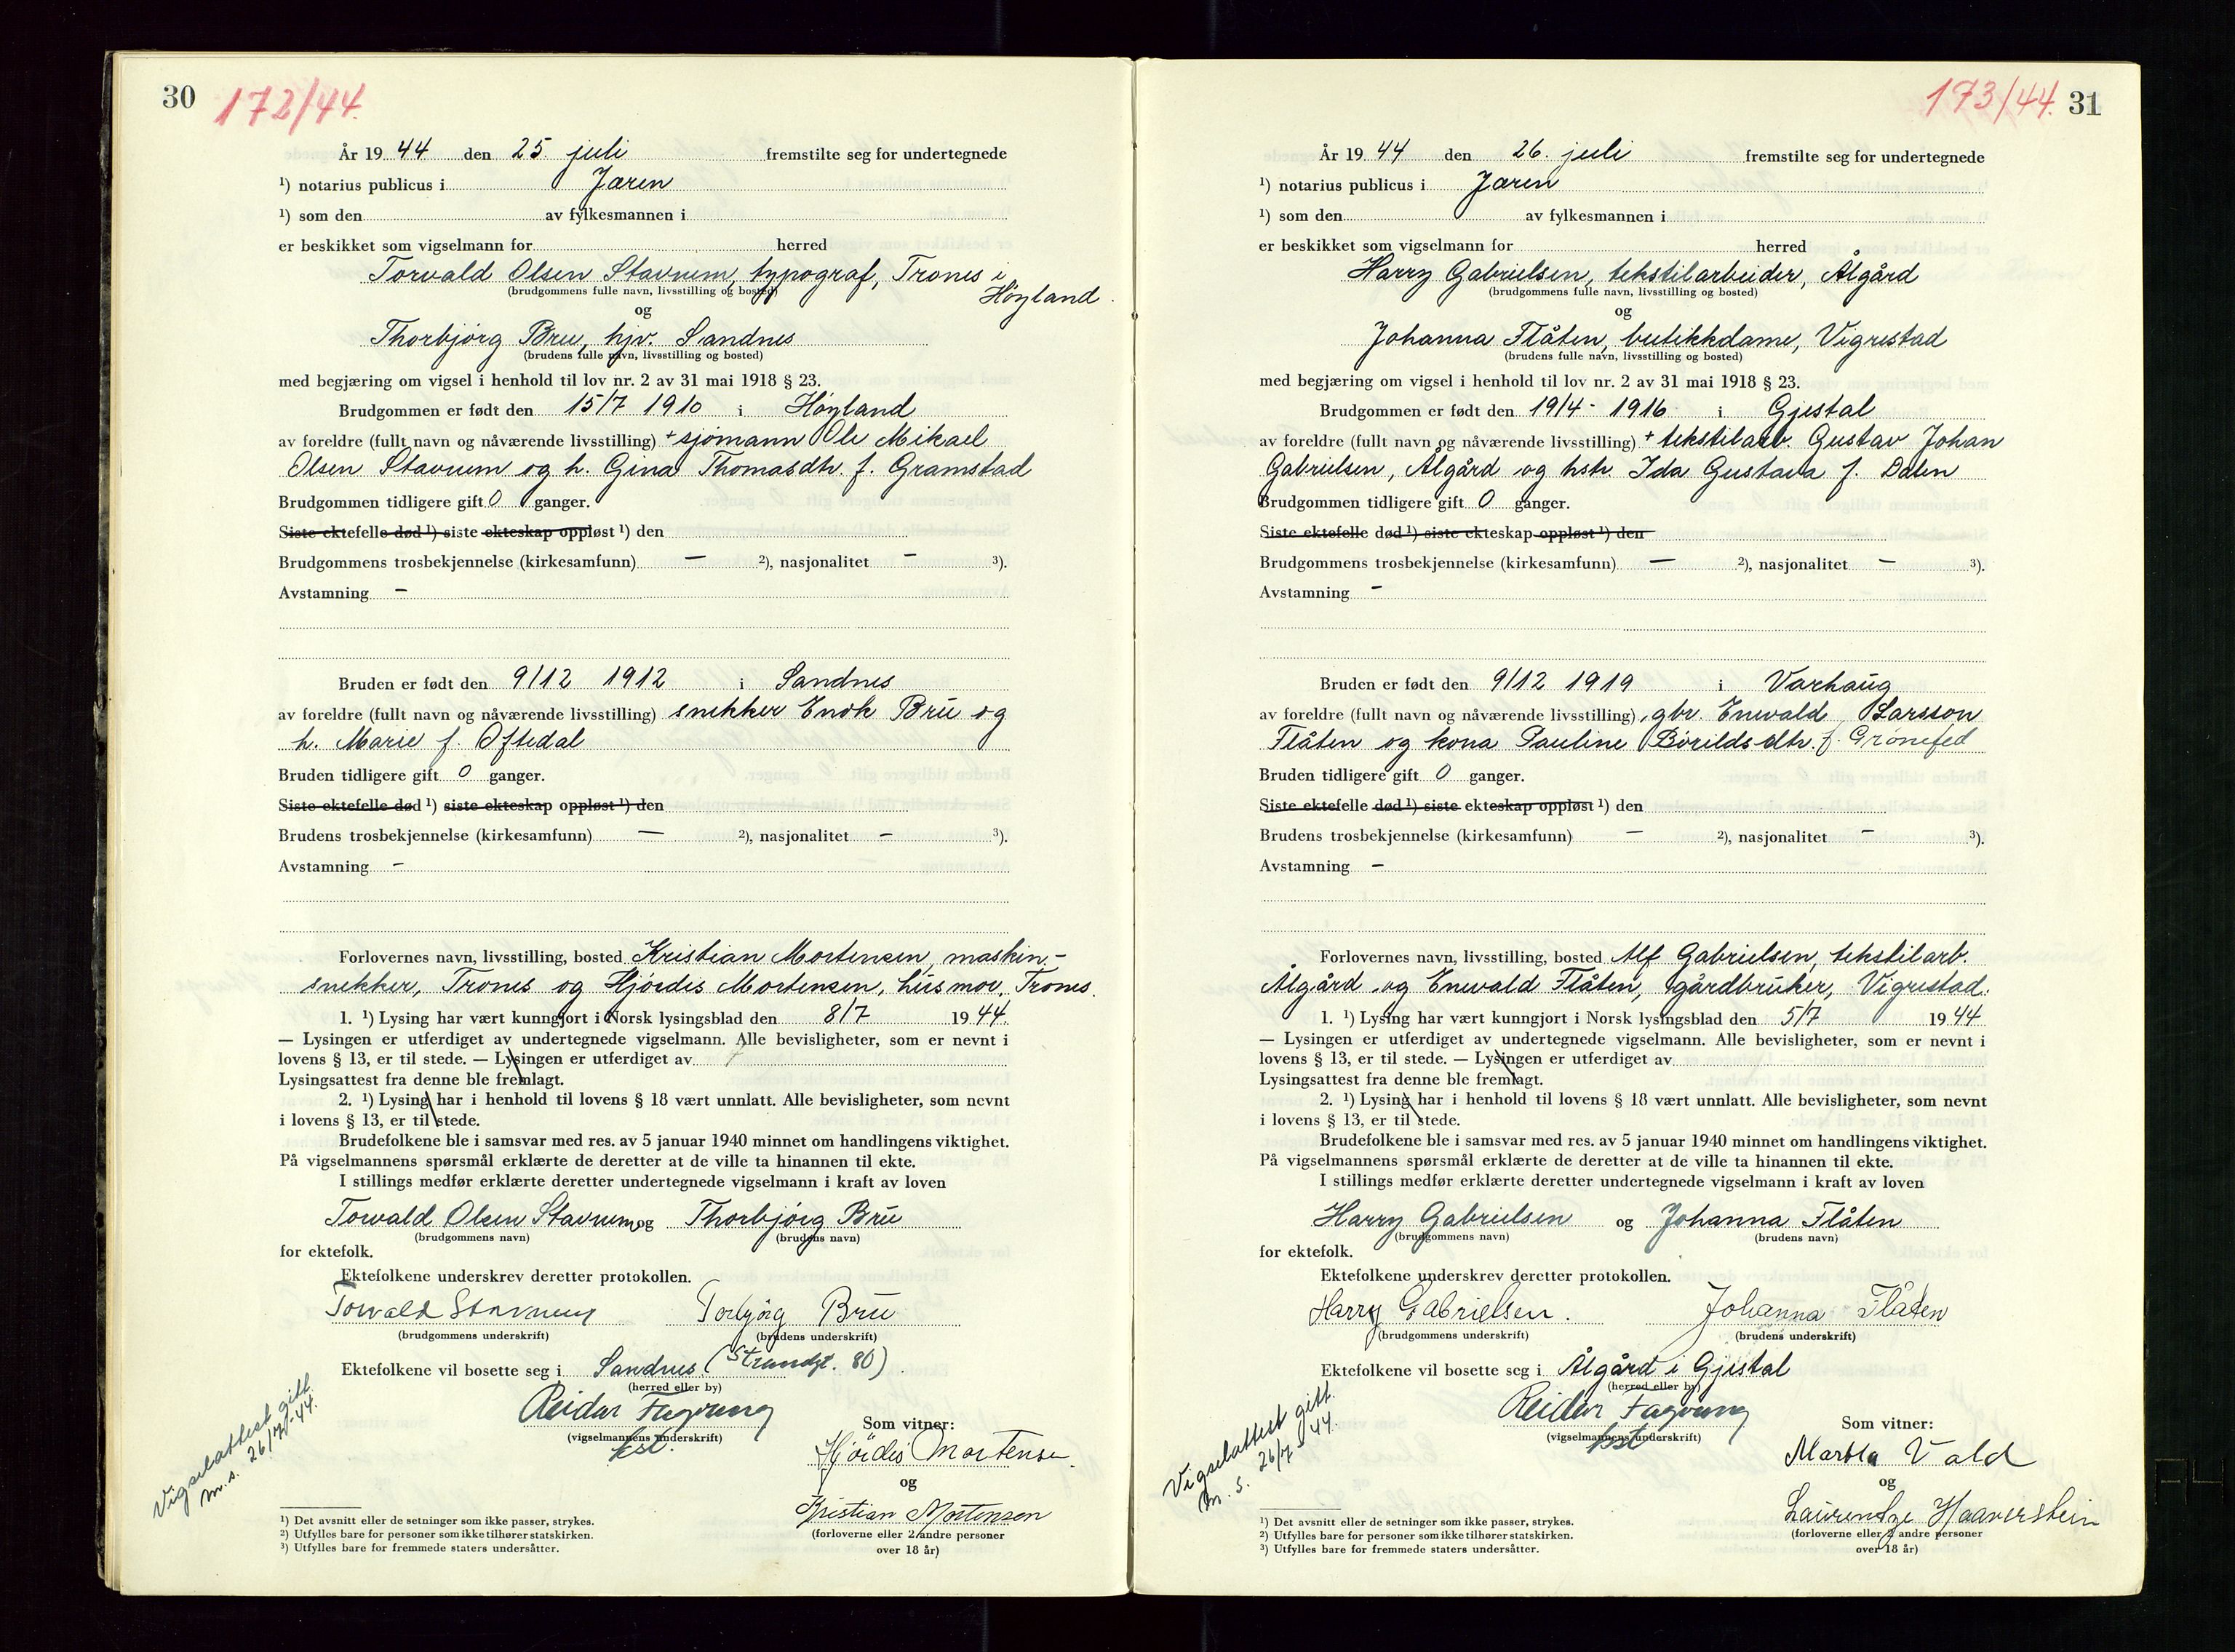 30
172/44.
År 19 44 den 25. juli fremstilte seg for undertegnede
¹) notarius publicus i Jæren
¹) som den av fylkesmannen i
er beskikket som vigselmann for herred
Torvald Olsen Stavnem, typograf, Trones i
Høyland.
(brudgommens fulle navn, livsstilling og bosted)
og
Thorbjørg Bru, hjv. Sandnes
(brudens fulle navn, livsstilling og bosted)
med begjæring om vigsel i henhold til lov nr. 2 av 31 mai 1918 § 23.
Brudgommen er født den 15/7 1910 i Høyland
av foreldre (fullt navn og nåværende livsstilling) + sjømann Ole Mikael
Olsen Stavnem og h. Gina Thomasdtr. f. Gramstad
Brudgommen tidligere gift 0 ganger.
Siste ektefelle død ¹) siste ekteskap oppløst ¹) den
Brudgommens trosbekjennelse (kirkesamfunn) — ²), nasjonalitet – ³).
Avstamning –
Bruden er født den 9/12 1912 i Sandnes
av foreldre (fullt navn og nåværende livsstilling) snekker Enok Bru og
h. Marie f. Oftedal
Bruden tidligere gift 0 ganger.
Siste ektefelle død ¹) siste ekteskap oppløst ¹) den
Brudens trosbekjennelse (kirkesamfunn) — ²), nasjonalitet – ³).
Avstamning –
Forlovernes navn, livsstilling, bosted Kristian Mortensen, maskin-
snekker, Trones og Hjørdis Mortensen, husmor, Trones.
1. ¹) Lysing har vært kunngjort i Norsk lysingsblad den 8/7 19 44.
— Lysingen er utferdiget av undertegnede vigselmann. Alle bevisligheter, som er nevnt i
lovens § 13, er til stede. — Lysingen er utferdiget av
Lysingsattest fra denne ble fremlagt.
2. ¹) Lysing har i henhold til lovens § 18 vært unnlatt. Alle bevisligheter, som nevnt
i lovens § 13, er til stede.
Brudefolkene ble i samsvar med res. av 5 januar 1940 minnet om handlingens viktighet.
På vigselmannens spørsmål erklærte de deretter at de ville ta hinannen til ekte.
I stillings medfør erklærte deretter undertegnede vigselmann i kraft av loven
Torvald Olsen Stavnem og Thorbjørg Bru
(brudgommens navn) (brudens navn)
for ektefolk.
Ektefolkene underskrev deretter protokollen.
Torvald Stavnem Torbjørg Bru
(brudgommens underskrift) (brudens underskrift)
Ektefolkene vil bosette seg i Sandnes (Strandgt. 80).
(herred eller by)
Reidar Fagvang
(vigselmannens underskrift)
kst.
Som vitner:
Hjördis Mortensen.
og
Kristian Mortensen
(forloverne eller 2 andre personer
over 18 år)
Vigselattest gitt
m.s. 26/7-44.
¹) Det avsnitt eller de setninger som ikke passer, strykes.
²) Utfylles bare for personer som ikke tilhører statskirken.
³) Utfylles bare for fremmede staters undersåtter.
173/44. 31
År 19 44 den 26. juli fremstilte seg for undertegnede
¹) notarius publicus i Jæren
¹) som den av fylkesmannen i
er beskikket som vigselmann for herred
Harry Gabrielsen, tekstilarbeider, Ålgård
(brudgommens fulle navn, livsstilling og bosted)
og
Johanna Flåten, butikkdame, Vigrestad
(brudens fulle navn, livsstilling og bosted)
med begjæring om vigsel i henhold til lov nr. 2 av 31 mai 1918 § 23.
Brudgommen er født den 19/4- 1916 i Gjestal
av foreldre (fullt navn og nåværende livsstilling) + tekstilarb. Gustav Johan
Gabrielsen, Ålgård og hstr. Ida Gustava f. Dalen
Brudgommen tidligere gift 0 ganger.
Siste ektefelle død ¹) siste ekteskap oppløst ¹) den
Brudgommens trosbekjennelse (kirkesamfunn) — ²), nasjonalitet – ³).
Avstamning –
Bruden er født den 9/12 1919 i Varhaug
av foreldre (fullt navn og nåværende livsstilling) gbr. Enevald Larsson
Flåten og kona Pauline Bårildsdtr. f. Grønefed
Bruden tidligere gift 0 ganger.
Siste ektefelle død ¹) siste ekteskap oppløst ¹) den
Brudens trosbekjennelse (kirkesamfunn) – ²), nasjonalitet – ³).
Avstamning –
Forlovernes navn, livsstilling, bosted Alf Gabrielsen, tekstilarb.
Ålgård og Enevald Flåten, gårdbruker, Vigrestad.
1. ¹) Lysing har vært kunngjort i Norsk lysingsblad den 5/7 19 44
— Lysingen er utferdiget av undertegnede vigselmann. Alle bevisligheter, som er nevnt i
lovens § 13, er til stede. — Lysingen er utferdiget av
Lysingsattest fra denne ble fremlagt.
2. ¹) Lysing har i henhold til lovens § 18 vært unnlatt. Alle bevisligheter, som nevnt
i lovens § 13, er til stede.
Brudefolkene ble i samsvar med res. av 5 januar 1940 minnet om handlingens viktighet.
På vigselmannens spørsmål erklærte de deretter at de ville ta hinannen til ekte.
I stillings medfør erklærte deretter undertegnede vigselmann i kraft av loven
Harry Gabrielsen og Johanna Flåten
(brudgommens navn) (brudens navn)
for ektefolk.
Ektefolkene underskrev deretter protokollen.
Harry Gabrielsen. Johanna Flåten
(brudgommens underskrift) (brudens underskrift)
Ektefolkene vil bosette seg i Ålgård i Gjestal
(herred eller by)
Reidar Fagvang
(vigselmannens underskrift)
kst
Som vitner:
Martha Vold
og
Laurentze Haaverstein
(forloverne eller 2 andre personer
over 18 år)
Vigselattest gitt.
m.s. 26/7-44.
¹) Det avsnitt eller de setninger som ikke passer, strykes.
²) Utfylles bare for personer som ikke tilhører statskirken.
³) Utfylles bare for fremmede staters undersåtter.